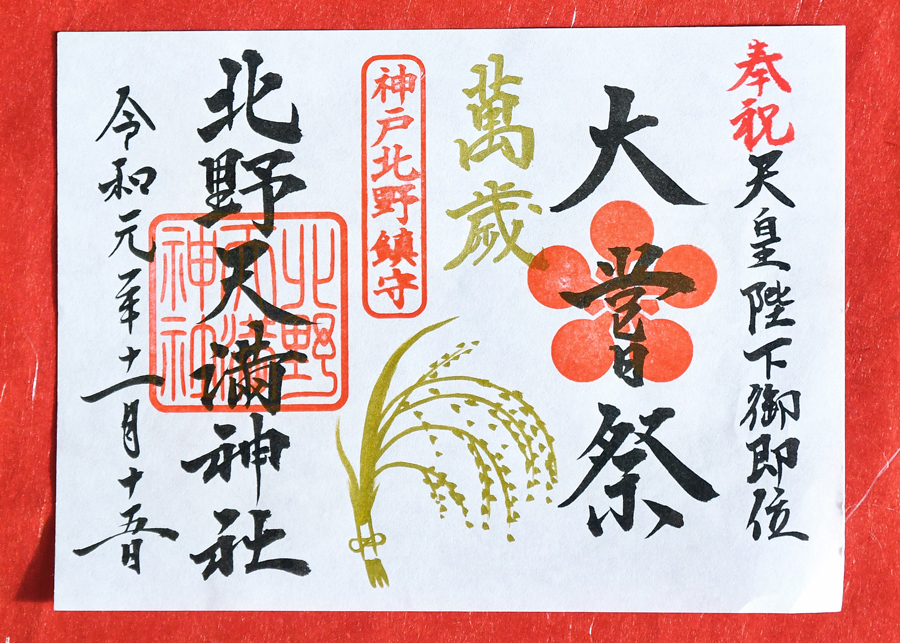 奉祝天皇陛下御即位
大嘗祭
萬歳
神戸北野鎮守
北野天満神社
北野天満神社
令和元年十一月十五日